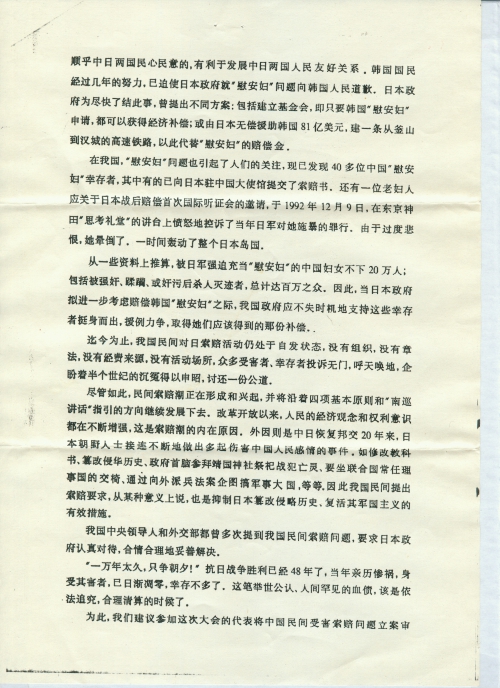 顺乎中日两国民心民意的,有利于发展中日两国人民友好关系。韩国国民
经过几年的努力,已迫使日本政府就"慰安妇"问题向韩国人民道歉。日本政
府为尽快了结此事,曾提出不同方案:包括建立基金会,即只要韩国"慰安妇"
申请,都可以获得经济补偿;或由日本无偿援助韩国81亿美元,建一条从釜山
到汉城的高速铁路,以此代替"慰安妇"的赔偿金。
在我国,"慰安妇"问题也引起了人们的关注,现已发现40多位中国"慰安
妇"幸存者,其中有的已向日本驻中国大使馆提交了索赔书。还有一位老妇人
应关于日本战后赔偿首次国际听证会的邀请,于1992年12月9日,在东京神
田"思考礼堂"的讲台上愤怒地控诉了当年日军对她施暴的罪行。由于过度悲
恨,她晕倒了。一时间轰动了整个日本岛国。
从一些资料上推算,被日军强迫充当"慰安妇"的中国妇女不下20万人;
包括被强奸、蹂躏、或奸污后杀人灭迹者,总计达百万之众。因此,当日本政府
拟进一步考虑赔偿韩国"慰安妇"之际,我国政府应不失时机地支持这些幸存
者挺身而出,援例力争,取得她们应该得到的那份补偿。.
迄今为止,我国民间对日索赔活动仍处于自发状态,没有组织,没有章
法,没有经费来源,没有活动场所,众多受害者、幸存者投诉无门,呼天唤地,企
盼着半个世纪的沉冤得以申昭,讨还一份公道。
尽管如此,民间索赔潮正在形成和兴起,并将沿着四项基本原则和"南巡
讲话"指引的方向继续发展下去。改革开放以来,人民的经济观念和权利意识
都在不断增强,这是索赔潮的内在原因。外因则是中日恢复邦交20年来,日
本朝野人士接连不断地做出多起伤害中国人民感情的事件。如修改教科
书、篡改侵华历史、政府首脑参拜靖国神社祭祀战犯亡灵、要坐联合国常任理
事国的交椅、通过向外派兵法案企图搞军事大国,等等,因此我国民间提出
索赔要求,从某种意义上说,也是抑制日本篡改侵略历史、复活其军国主义的
有效措施。
我国中央领导人和外交部都曾多次提到我国民间索赔问题,要求日本政
府认真对待,合情合理地妥善解决。
"一万年太久,只争朝夕!"抗日战争胜利已经48年了,当年亲历惨祸,身
受其害者,已日渐凋零,幸存不多了。这笔举世公认、人间罕见的血债,该是依
法追究,合理清算的时候了。
为此,我们建议参加这次大会的代表将中国民间受害索赔问题立案审